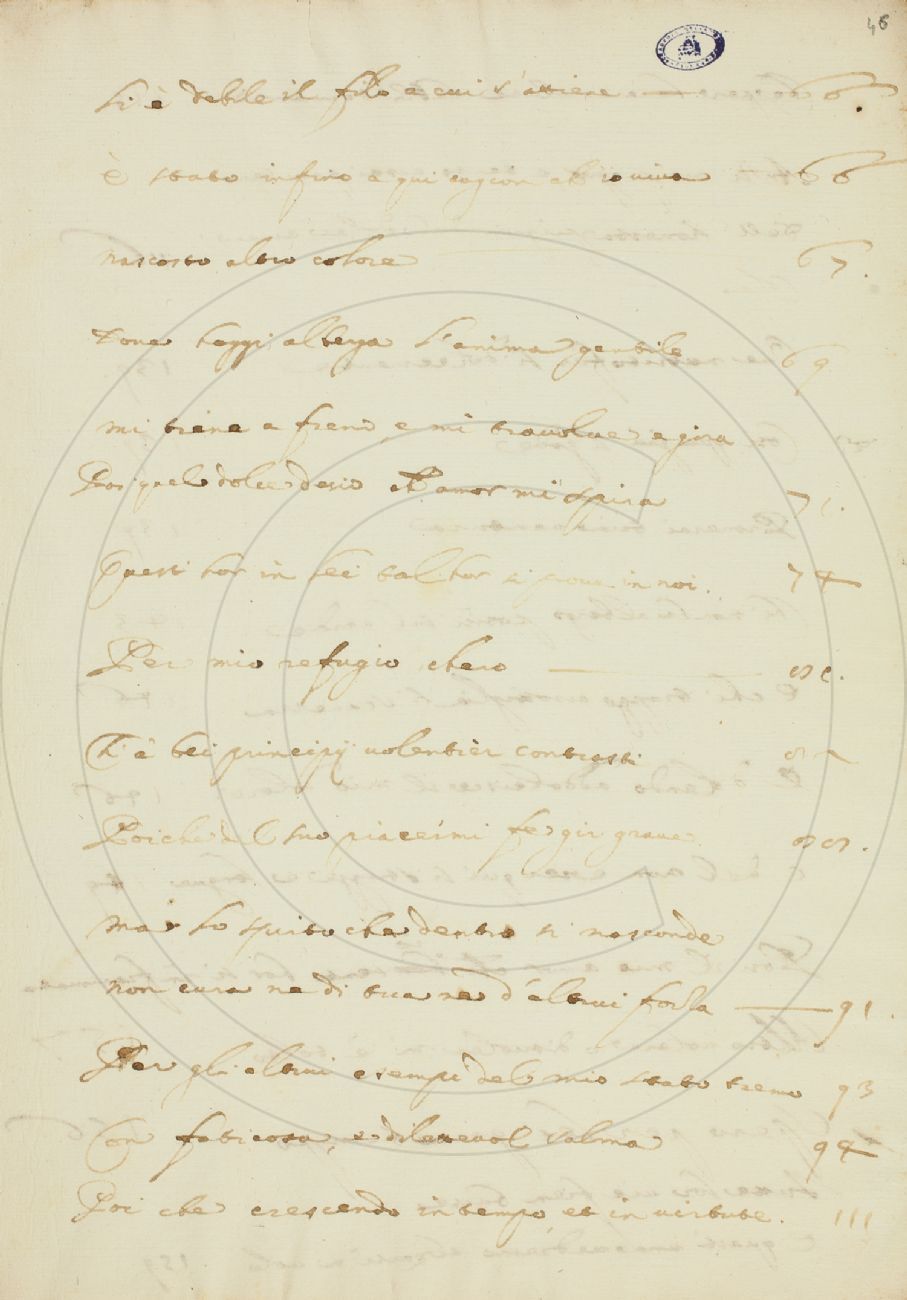 48
Si è debile il filo a cui s'attiene 66.
è stato infino a qui cagion ch' io viva 66
nascosto altro colore 67.
Dona hoggi alberga l'anima gentile 69
mi tiene a freno, e mi travolve, e gira
Pos quel dolce desio ch' amor mi spira 71.
Questi hor in lei talhor si prova in noi. 74
Per mio refugio chero 81.
Ch' a bei principij volentier contrasti
Poiche del suo piacer mi fe gir grave 88.
ma lo spirto che dentro si nasconde
non cura ne di tua ne d'altrui forza 91.
Per gli altrui esempi del mio stato tremo 93
Con faticosa, e dilettevol salma 94
Poi che crescendo in tempo, et in virtute. 111